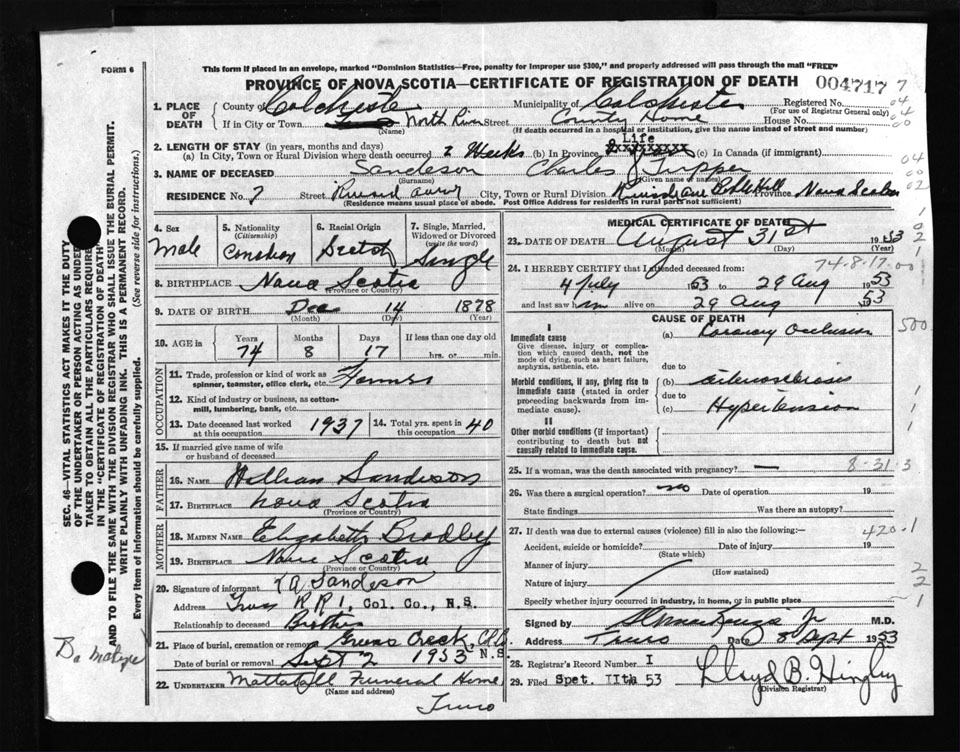 FORM 6
This form if placed in an envelope, marked "Dominion Statistics—Free, penalty for improper use $300," and properly addressed will pass through the mail "FREE"
PROVINCE OF NOVA SCOTIA—CERTIFICATE OF REGISTRATION OF DEATH 004717 7
1. PLACE OF DEATH County of Colchester Municipality of Colchester Registered No.
(For use of Registrar General only) 04
If in City or Town North River Street County Home House No. 00
(Name) (If death occurred in a hospital or institution, give the name instead of street and number)
2. LENGTH OF STAY (in years, months and days) Life
(a) In City, Town or Rural Division where death occurred 2 Weeks (b) In Province xxxxxxxxx (c) In Canada (if immigrant) 04
3. NAME OF DECEASED Sandeson Charles Tupper 00
(Surname) (Given name or names)
RESIDENCE No. 7 Street City, Town or Rural Division Bible Hill Province Nova Scotia 02
(Residence means usual place of abode. Post Office Address for residents in rural parts not sufficient)
4. Sex
Male
5. Nationality
(Citizenship)
Canadian
6. Racial Origin
Scotch
7. Single, Married, Widowed or Divorced
(write the word)
Single
8. BIRTHPLACE Nova Scotia
(Province or Country)
9. DATE OF BIRTH Dec 14 1878
(Month) (Day) (Year)
10. AGE in Years 74 Months 8 Days 17 If less than one day
hrs. or min.
OCCUPATION
11. Trade, profession or kind of work as spinner, teamster, office clerk, etc. Farmer
12. Kind of industry or business, as cotton-mill, lumbering, bank, etc.
13. Date deceased last worked at this occupation 1937 14. Total yrs. spent in this occupation 40
15. If married give name of wife or husband of deceased
FATHER
16. NAME William Sandeson
17. BIRTHPLACE Nova Scotia
(Province or Country)
MOTHER
18. MAIDEN NAME Elizabeth Bradley
19. BIRTHPLACE Nova Scotia
(Province or Country)
20. Signature of informant Sandeson
Address Truro R R 1, Col. Co., N.S.
Relationship to deceased Brother
21. Place of burial, cremation or removal Creek, Col. Co. N.S.
Date of burial or removal Sept 2 1953
22. UNDERTAKER Mattatall Funeral Home
(Name and address)
Truro
MEDICAL CERTIFICATE OF DEATH
23. DATE OF DEATH August 31st 1953
(Month) (Day)
74-8-17-00
24. I HEREBY CERTIFY that I attended deceased from:
4 July 1953 to 29 Aug 1953
and last saw him alive on 29 Aug 53
CAUSE OF DEATH
I
Immediate cause (a) Coronary Occlusion 500
Give disease, injury or complication which caused death, not the mode of dying, such as heart failure, asphyxia, asthenia, etc.
due to
Morbid conditions, if any, giving rise to immediate cause (stated in order proceeding backwards from immediate cause).
(b) arteriosclerosis
due to
(c) Hypertension
II
Other morbid conditions (if important) contributing to death but not causally related to immediate cause.
25. If a woman, was the death associated with pregnancy? — 8-31-3
26. Was there a surgical operation? no Date of operation 19
State findings Was there an autopsy?
27. If death was due to external causes (violence) fill in also the following:— 420.1
Accident, suicide or homicide? Date of injury 19
(State which)
Manner of injury 2
(How sustained)
Nature of injury 2
Specify whether injury occurred in industry, in home, or in public place 1
Signed by Jr M.D.
Address Truro Date 8 Sept 1953
28. Registrar's Record Number I
29. Filed Spet. IIth 53 Lloyd B. Hingley
(Division Registrar)
SEC. 46—VITAL STATISTICS ACT MAKES IT THE DUTY
OF THE UNDERTAKER OR PERSON ACTING AS UNDERTAKER TO OBTAIN ALL THE PARTICULARS REQUIRED
IN THE "CERTIFICATE OF REGISTRATION OF DEATH"
AND TO FILE THE SAME WITH THE DIVISION REGISTRAR WHO SHALL ISSUE THE BURIAL PERMIT.
WRITE PLAINLY WITH UNFADING INK. THIS IS A PERMANENT RECORD.
Every item of information should be carefully supplied. (See reverse side for instructions.)